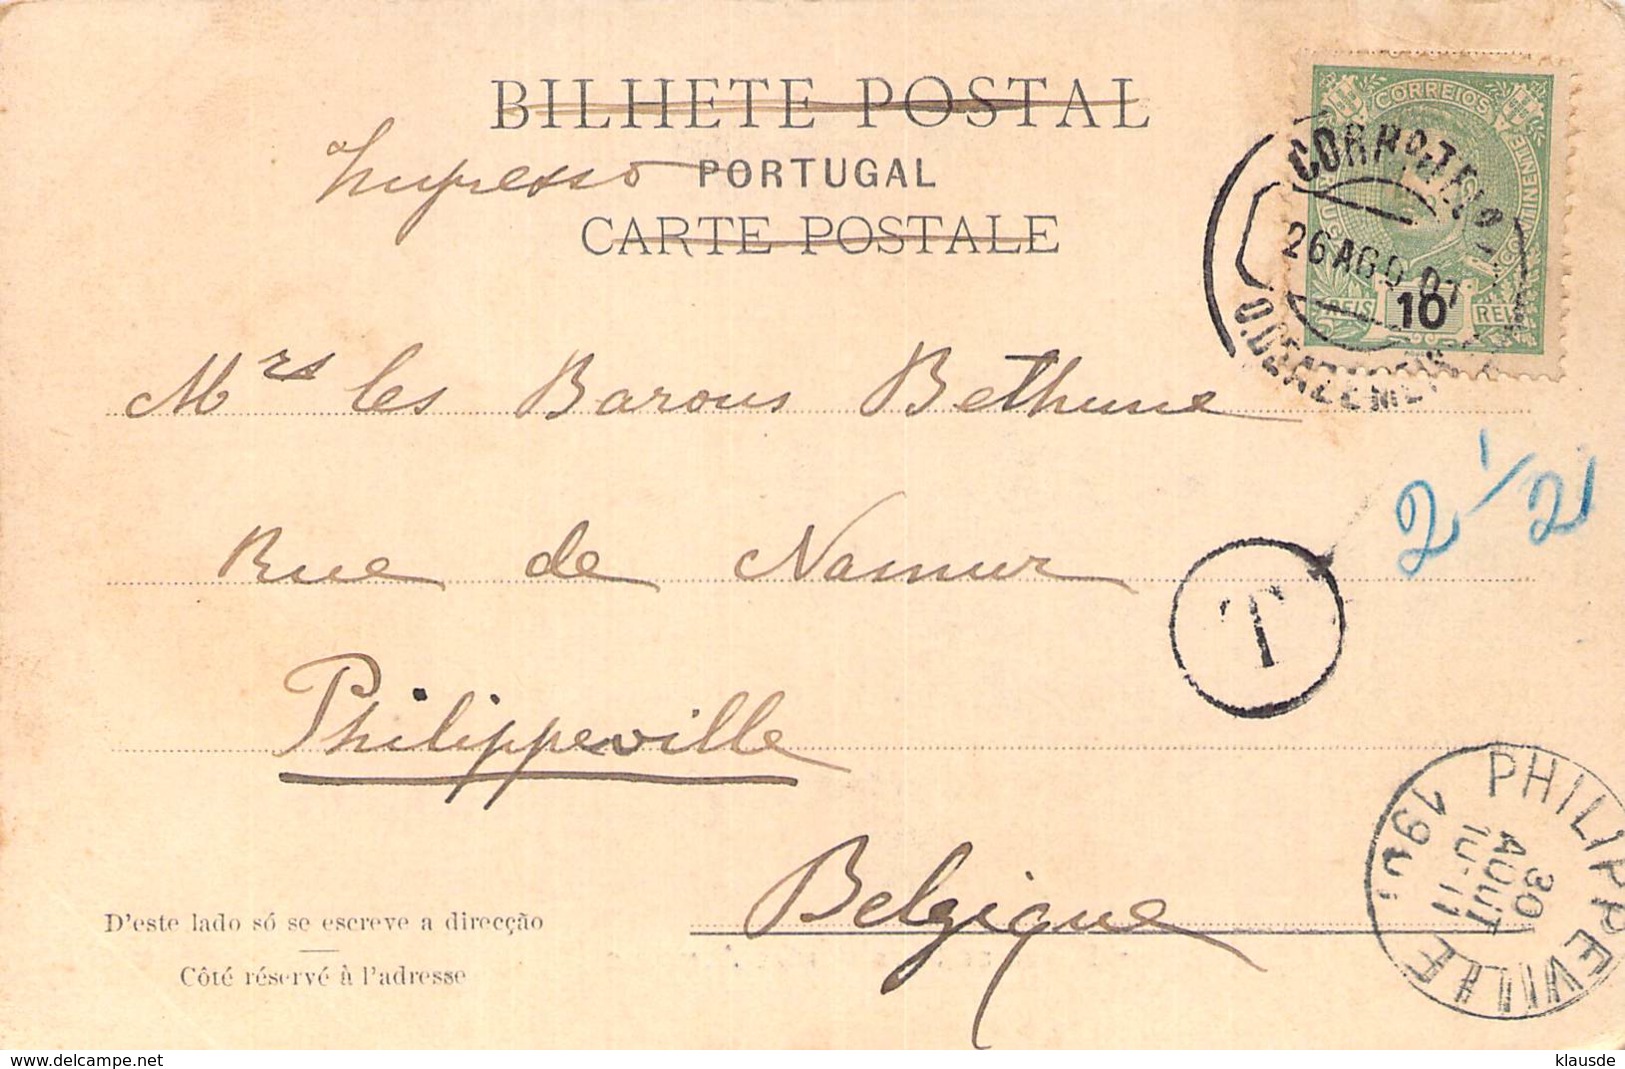 BILHETE POSTAL
Impresso PORTUGAL
CARTE POSTALE
CORREIOS
REIS 10 REIS
26 AGO 07
Mrs les Barons Bethune
2 1/2
Rue de Namur
T
Philippeville
Belgique
PHILIPPEVILLE
30
AOUT
10-11
D'este lado só se escreve a direcção
Côté réservé à l'adresse
www.delcampe.net
klausde